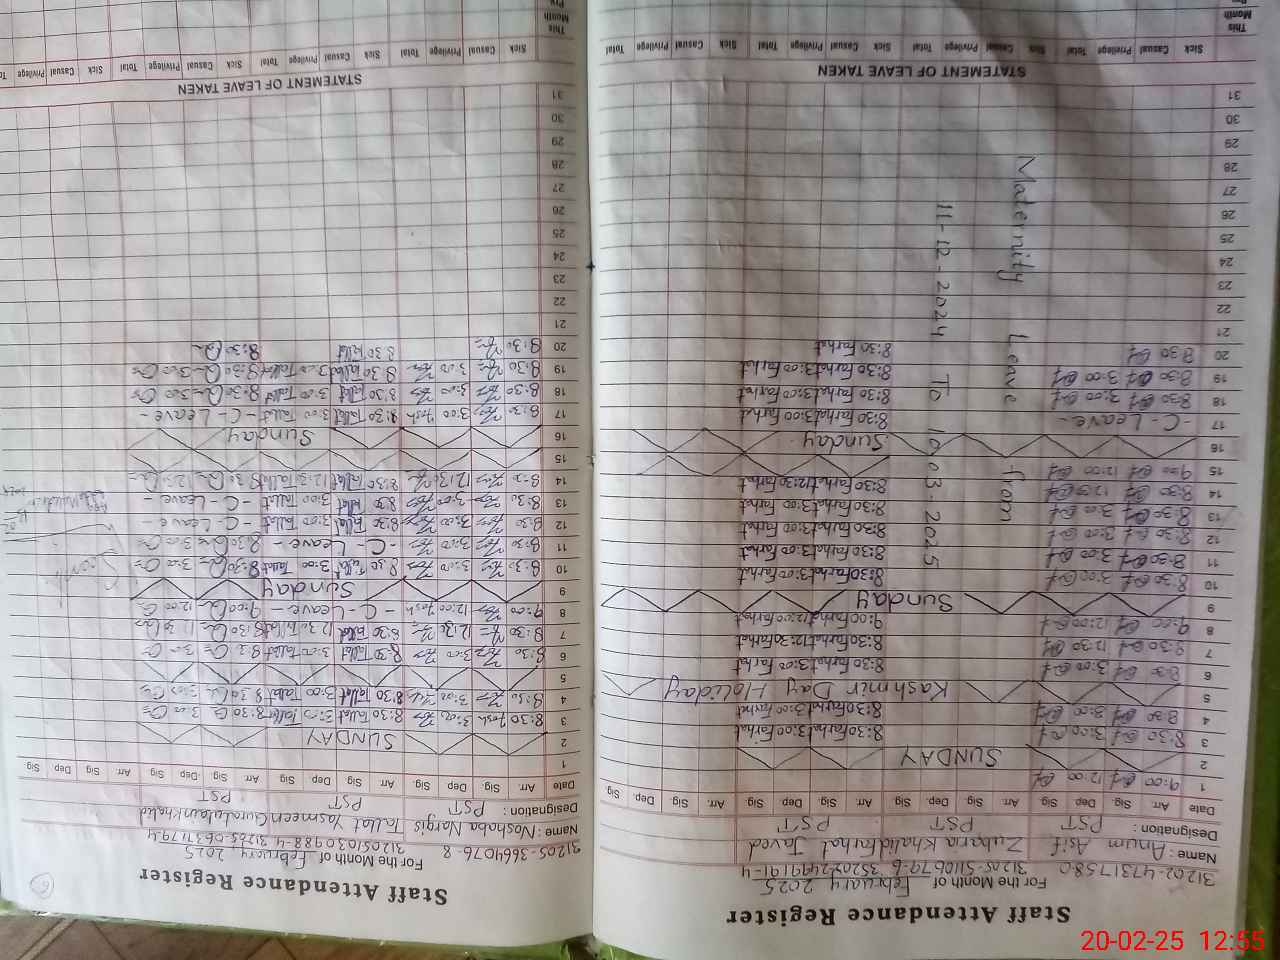 Staff Attendance Register
For the Month of February 2025
31202-4731758-0 31205-5110679-6 35202-2499191-4
Name : Anum Asif Zuharia Khalid Farhat Javed
Designation : PST PST PST
Date Arr Sig Dep Sig. Arr. Sig Dep. Sig Arr. Sig Dep Sig Arr. Sig Dep. Sig.
1 9:00 12:00
2 SUNDAY
3 8:30 3:00 8:30 Farhat 3:00 Farhat
4 8:30 3:00 8:30 Farhat 3:00 Farhat
5 Kashmir Day Holiday
6 8:30 3:00 8:30 Farhat 3:00 Farhat
7 8:30 12:30 8:30 Farhat 12:30 Farhat
8 9:00 12:00 9:00 Farhat 12:00 Farhat
9 Sunday
10 8:30 3:00 8:30 Farhat 3:00 Farhat
11 8:30 3:00 8:30 Farhat 3:00 Farhat
12 8:30 3:00 8:30 Farhat 3:00 Farhat
13 8:30 3:00 8:30 Farhat 3:00 Farhat
14 8:30 12:30 8:30 Farhat 12:30 Farhat
15 9:00 12:00
16 Sunday
17 - C - Leave - 8:30 Farhat 3:00 Farhat
18 8:30 3:00 8:30 Farhat 3:00 Farhat
19 8:30 3:00 8:30 Farhat 3:00 Farhat
20 8:30 8:30 Farhat
21
22
23
24
25
26
27
28
29
30
31
Maternity Leave from
11-12-2024 To 10-03-2025
STATEMENT OF LEAVE TAKEN
Sick Casual Privilege Total Sick Casual Privilege Total Sick Casual Privilege Total Sick Casual Privilege Total
This Month
Staff Attendance Register
For the Month of February 2025
31205-3664076-8 31205-1030988-4 31205-0637179-4
Name : Noshaba Nargis Tallat Yasmeen Quratulain Khalid
Designation : PST PST PST
Date Arr Sig Dep Sig. Arr Sig Dep Sig Arr Sig Dep. Sig Arr Sig Dep Sig.
1
2 SUNDAY
3 8:30 3:00 8:30 Tallat 3:00 Tallat 8:30 3:00
4 8:30 3:00 8:30 Tallat 3:00 Tallat 8:30 3:00
5
6 8:30 3:00 8:30 Tallat 3:00 Tallat 8:30 3:00
7 8:30 12:30 8:30 Tallat 12:30 Tallat 8:30 12:30
8 9:00 12:00 - C - Leave - 9:00 12:00
9 Sunday
10 8:30 3:00 8:30 Tallat 3:00 Tallat 8:30 3:00
11 8:30 3:00 - C - Leave - 8:30 3:00
12 8:30 3:00 8:30 Tallat 3:00 Tallat - C - Leave -
13 8:30 3:00 8:30 Tallat 3:00 Tallat - C - Leave -
14 8:30 12:30 8:30 Tallat 12:30 Tallat 8:30 12:30
15
16 Sunday
17 8:30 3:00 8:30 Tallat 3:00 Tallat - C - Leave -
18 8:30 3:00 8:30 Tallat 3:00 Tallat 8:30 3:00
19 8:30 3:00 8:30 Tallat 3:00 Tallat 8:30 3:00
20 8:30 8:30 Tallat 8:30
21
22
23
24
25
26
27
28
29
30
31
STATEMENT OF LEAVE TAKEN
Sick Casual Privilege Total Sick Casual Privilege Total Sick Casual Privilege Total Sick Casual Privilege
This Month
20-02-25 12:55